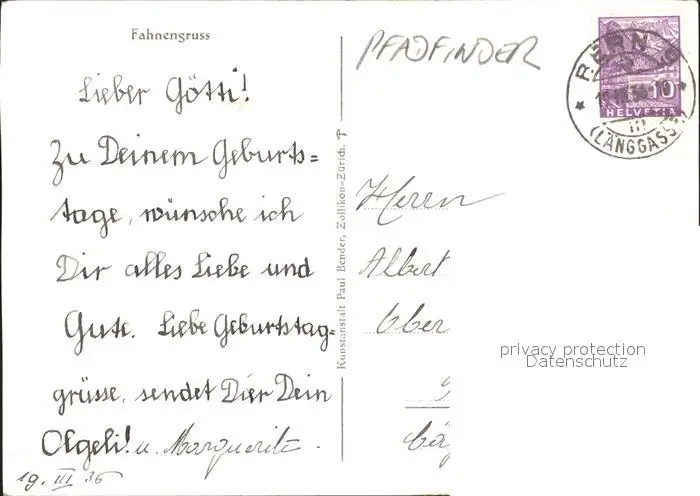 Fahnengruss
PFADFINDER
BERN
10
HELVETIA
III
(LÄNGGASSE)
Lieber Götti!
Zu Deinem Geburts=
tage, wünsche ich
Dir alles Liebe und
Gute. Liebe Geburtstag=
grüsse, sendet Dier Dein
Olgeli! u. Marguerite.
19. III 36
Kunstanstalt Paul Bender, Zollikon-Zürich.
Herrn
Albert
Ober
privacy protection
Datenschutz